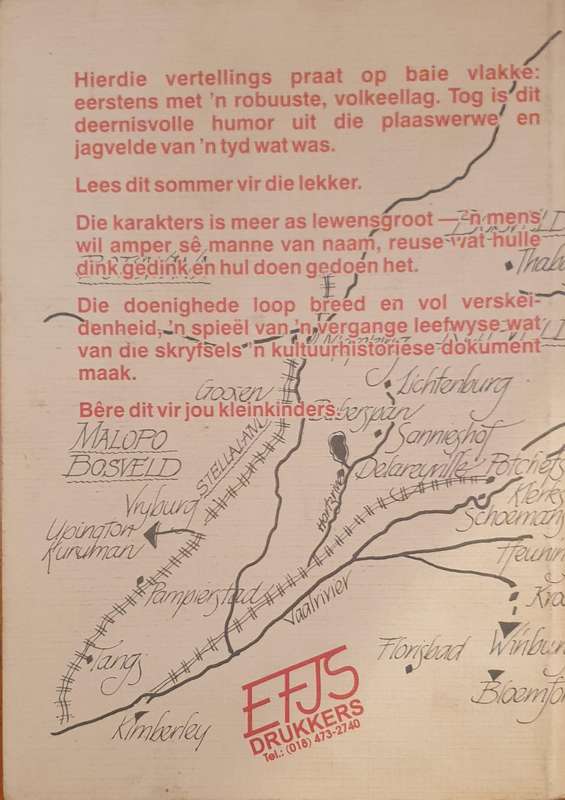 Hierdie vertellings praat op baie vlakke:
eerstens met 'n robuuste, volkeellag. Tog is dit
deernisvolle humor uit die plaaswerwe en
jagvelde van 'n tyd wat was.
Lees dit sommer vir die lekker.
Die karakters is meer as lewensgroot — 'n mens
wil amper sê manne van naam, reuse wat hulle
dink gedink en hul doen gedoen het.
Die doenighede loop breed en vol verskei-
denheid, 'n spieël van 'n vergange leefwyse wat
van die skryfsels 'n kultuurhistoriese dokument
maak.
Bêre dit vir jou kleinkinders.
Thaba
Goosen
Lichtenburg
Barberspan
MALOPO
BOSVELD
STELLALAND
Sannieshof
Delareyville
Potchefs
Vryburg
Hartsrivier
Klerks
Schoemans
Upington
Kuruman
Pampierstad
Vaalrivier
Kro
Tangs
Florisbad
Winbur
Bloemfon
Kimberley
EFJS
DRUKKERS
Tel.: (018) 473-2740